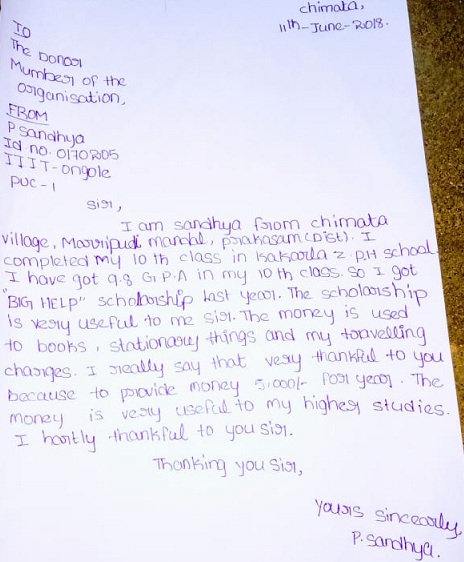 chimata,
11th-June-2018.
TO
The Donor
Mumber of the
organisation,
FROM
P Sandhya
Id no. 0170205
IIIT-ongole
PUC-1
Sir,
I am sandhya from chimata
village, Marripudi mandal, prakasam(Dist). I
completed my 10 th class in kakarla z P.H school.
I have got 9.8 G.P.A in my 10 th class. So I got
"BIG HELP" scholorship last year. The scholorship
is very useful to me sir. The money is used
to books, stationary things and my travelling
charges. I really say that very thankful to you
because to provide money 5,000/- for year. The
money is very useful to my higher studies.
I hartly thankful to you sir.
Thanking you sir,
yours sincearly,
P. Sandhya.